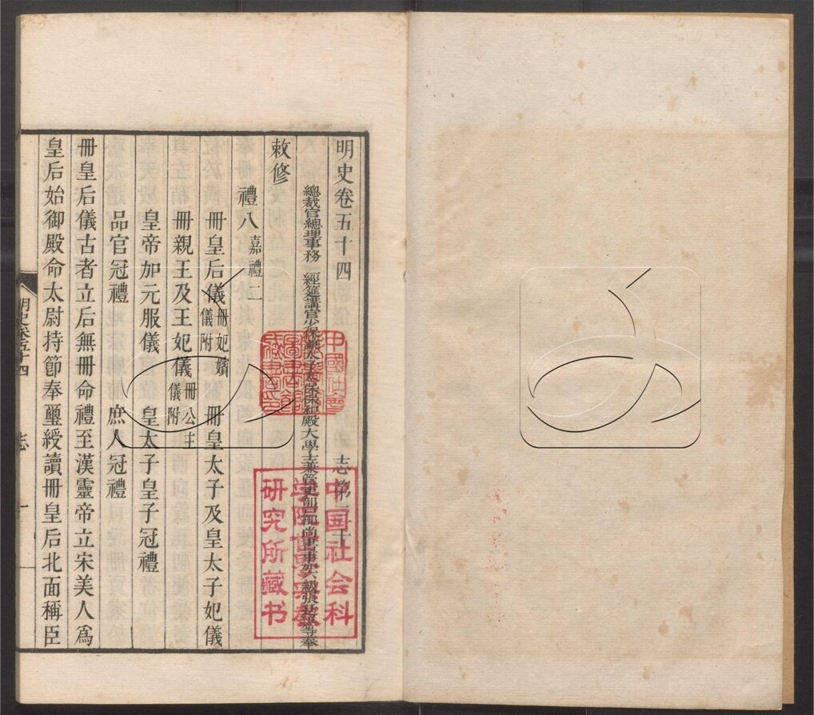 明史卷五十四 志第三十
總裁官總理事務 經筵講官少保兼太子太保保和殿大學士兼管吏部戶部尚書事加六級張廷玉等奉
敕修
禮八嘉禮二
冊皇后儀冊妃嬪儀附 冊皇太子及皇太子妃儀
冊親王及王妃儀冊公主儀附
皇帝加元服儀 皇太子皇子冠禮
品官冠禮 庶人冠禮
冊皇后儀古者立后無冊命禮至漢靈帝立宋美人為
皇后始御殿命太尉持節奉璽綬讀冊皇后北面稱臣
明史卷五十四 志 一
中國社會
圖書館
藏書
中国社会科
学院
研究所藏书